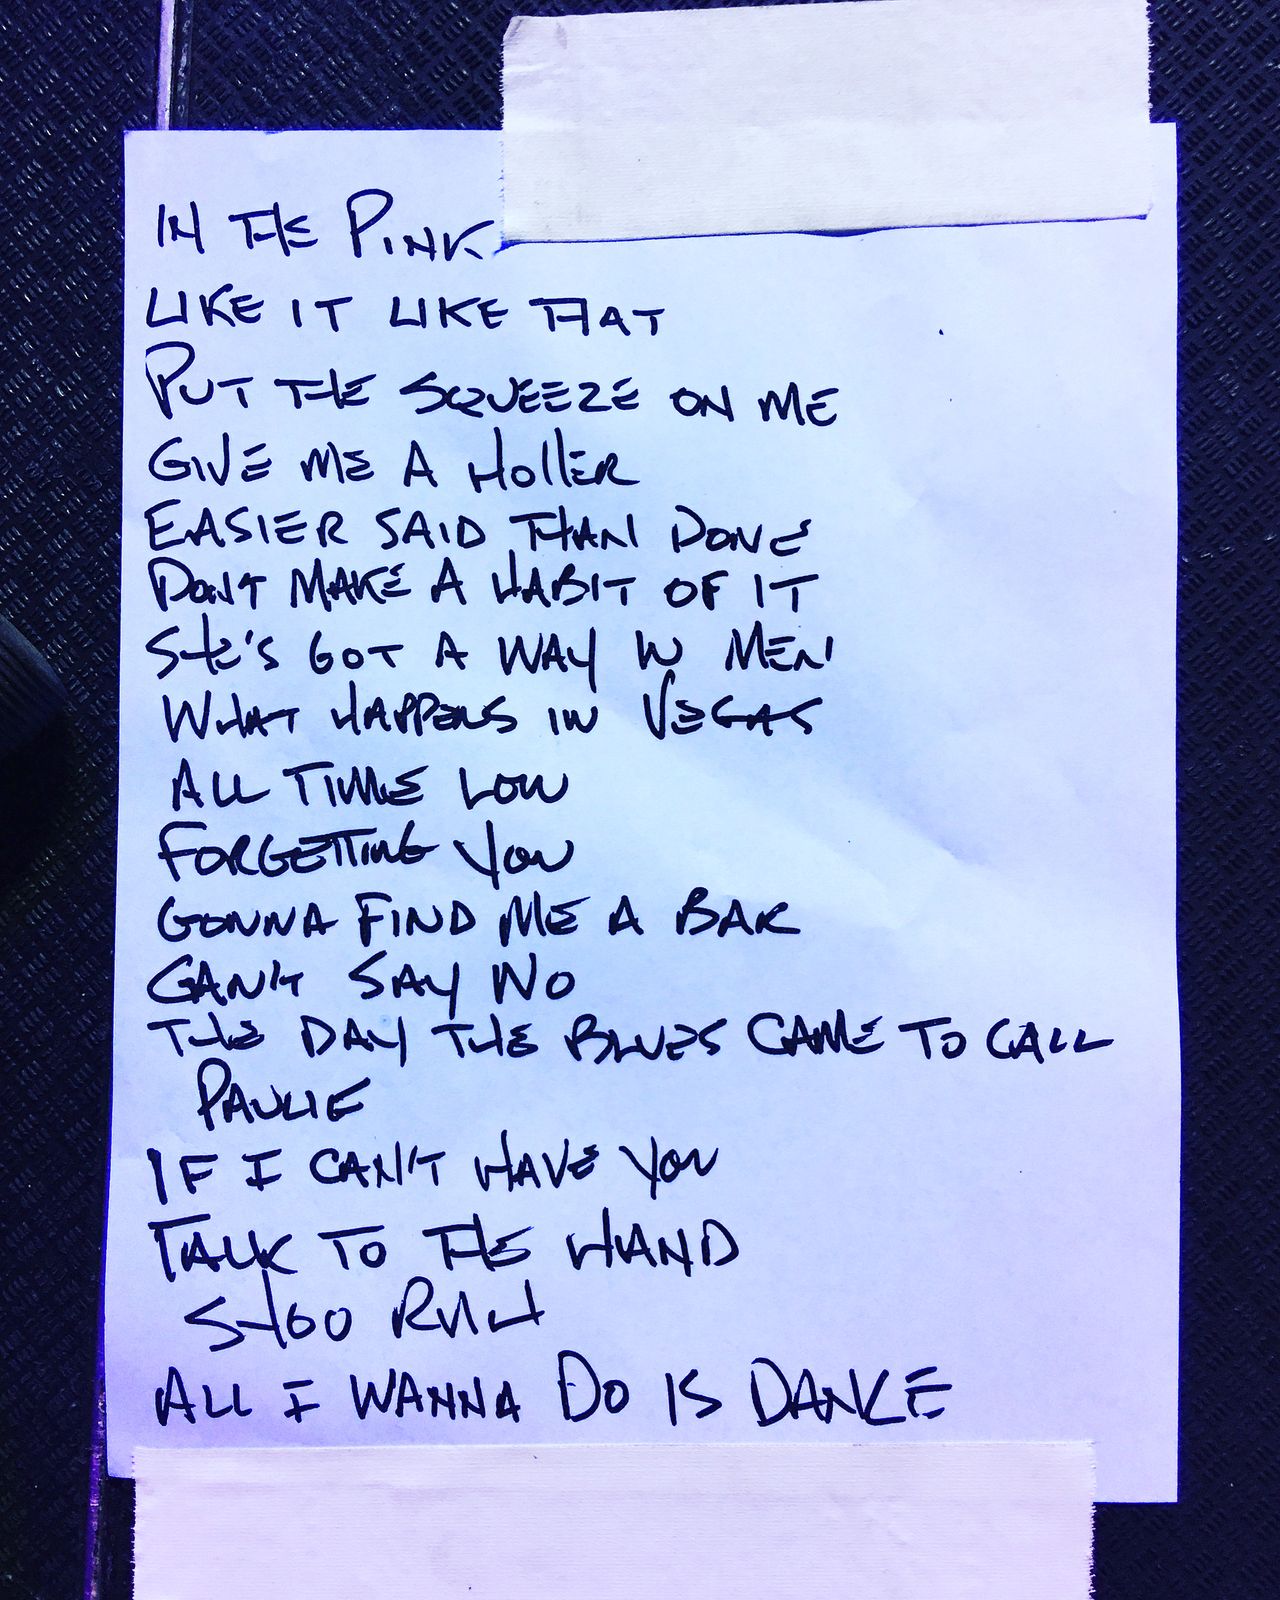 IN THE PINK
LIKE IT LIKE THAT
PUT THE SQUEEZE ON ME
GIVE ME A HOLLER
EASIER SAID THAN DONE
DONT MAKE A HABIT OF IT
SHE'S GOT A WAY W MEN
WHAT HAPPENS IN VEGAS
ALL TIME LOW
FORGETTING YOU
GONNA FIND ME A BAR
CAN'T SAY NO
THE DAY THE BLUES CAME TO CALL
PAULIE
IF I CAN'T HAVE YOU
TALK TO THE HAND
ALL I WANNA DO IS DANCE